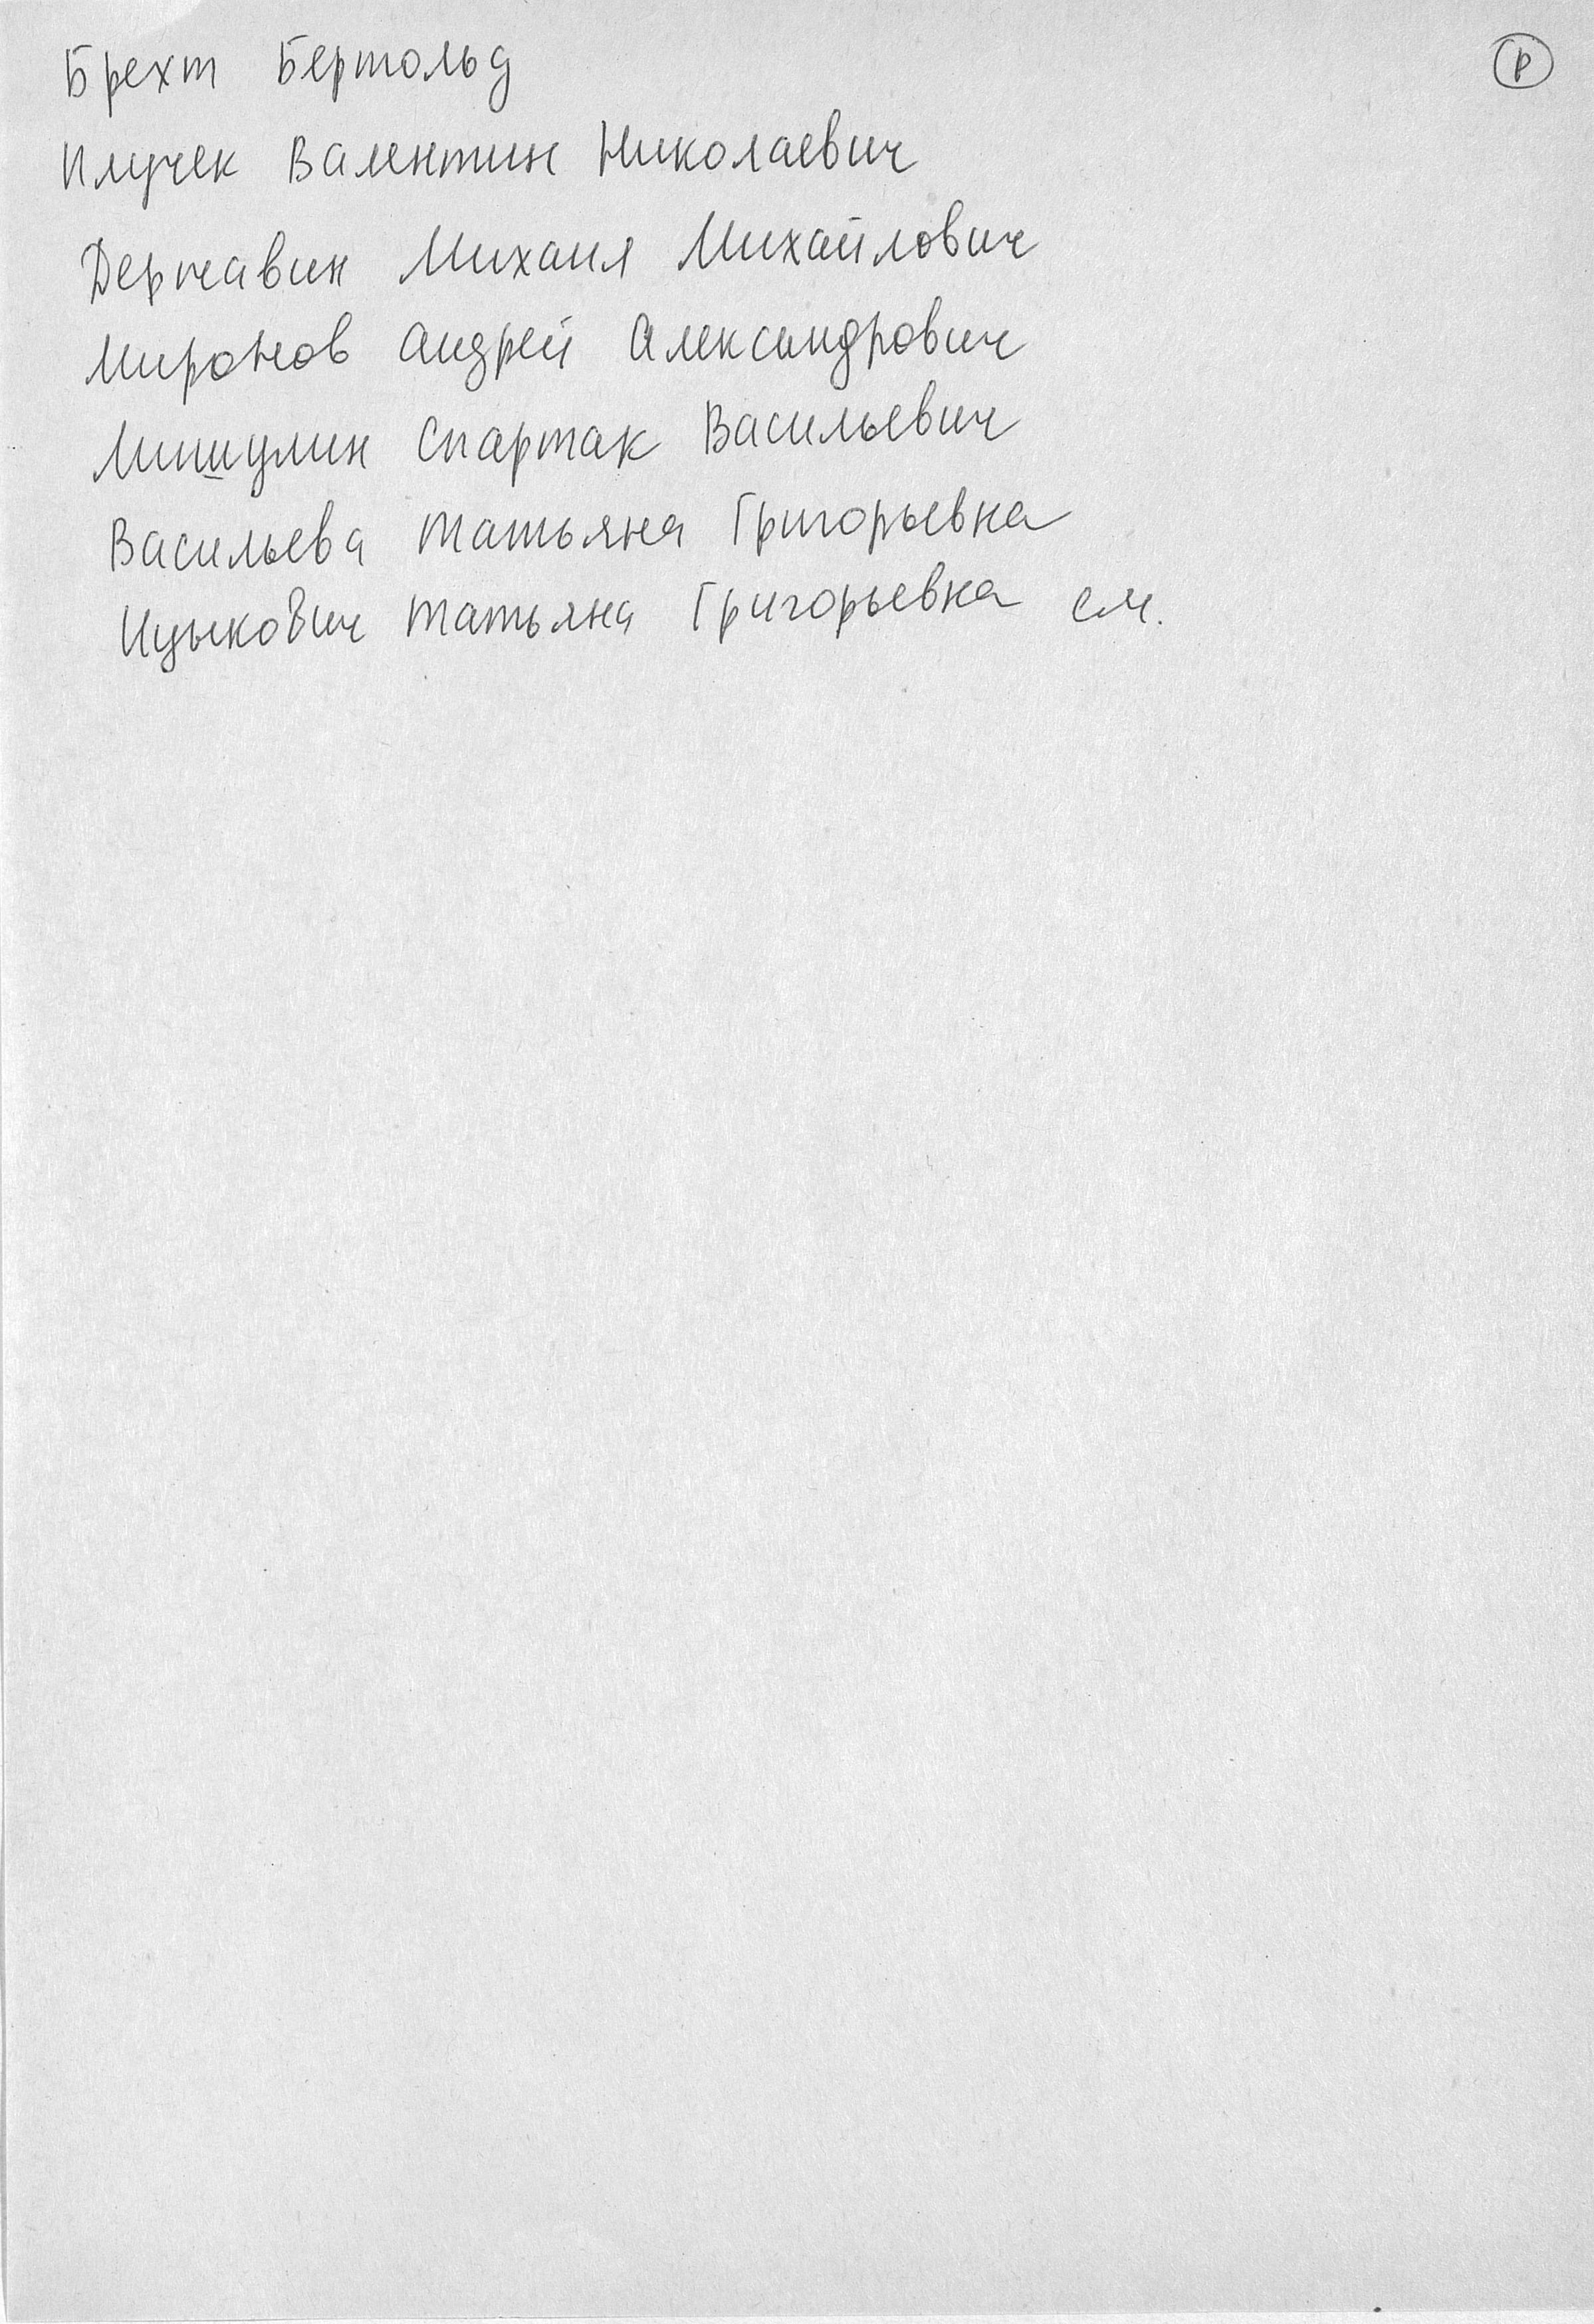 Брехт Бертольд
Р
Плучек Валентин Николаевич
Державин Михаил Михайлович
Миронов Андрей Александрович
Мишулин Спартак Васильевич
Васильева Татьяна Григорьевна
Ицыкович Татьяна Григорьевна см.